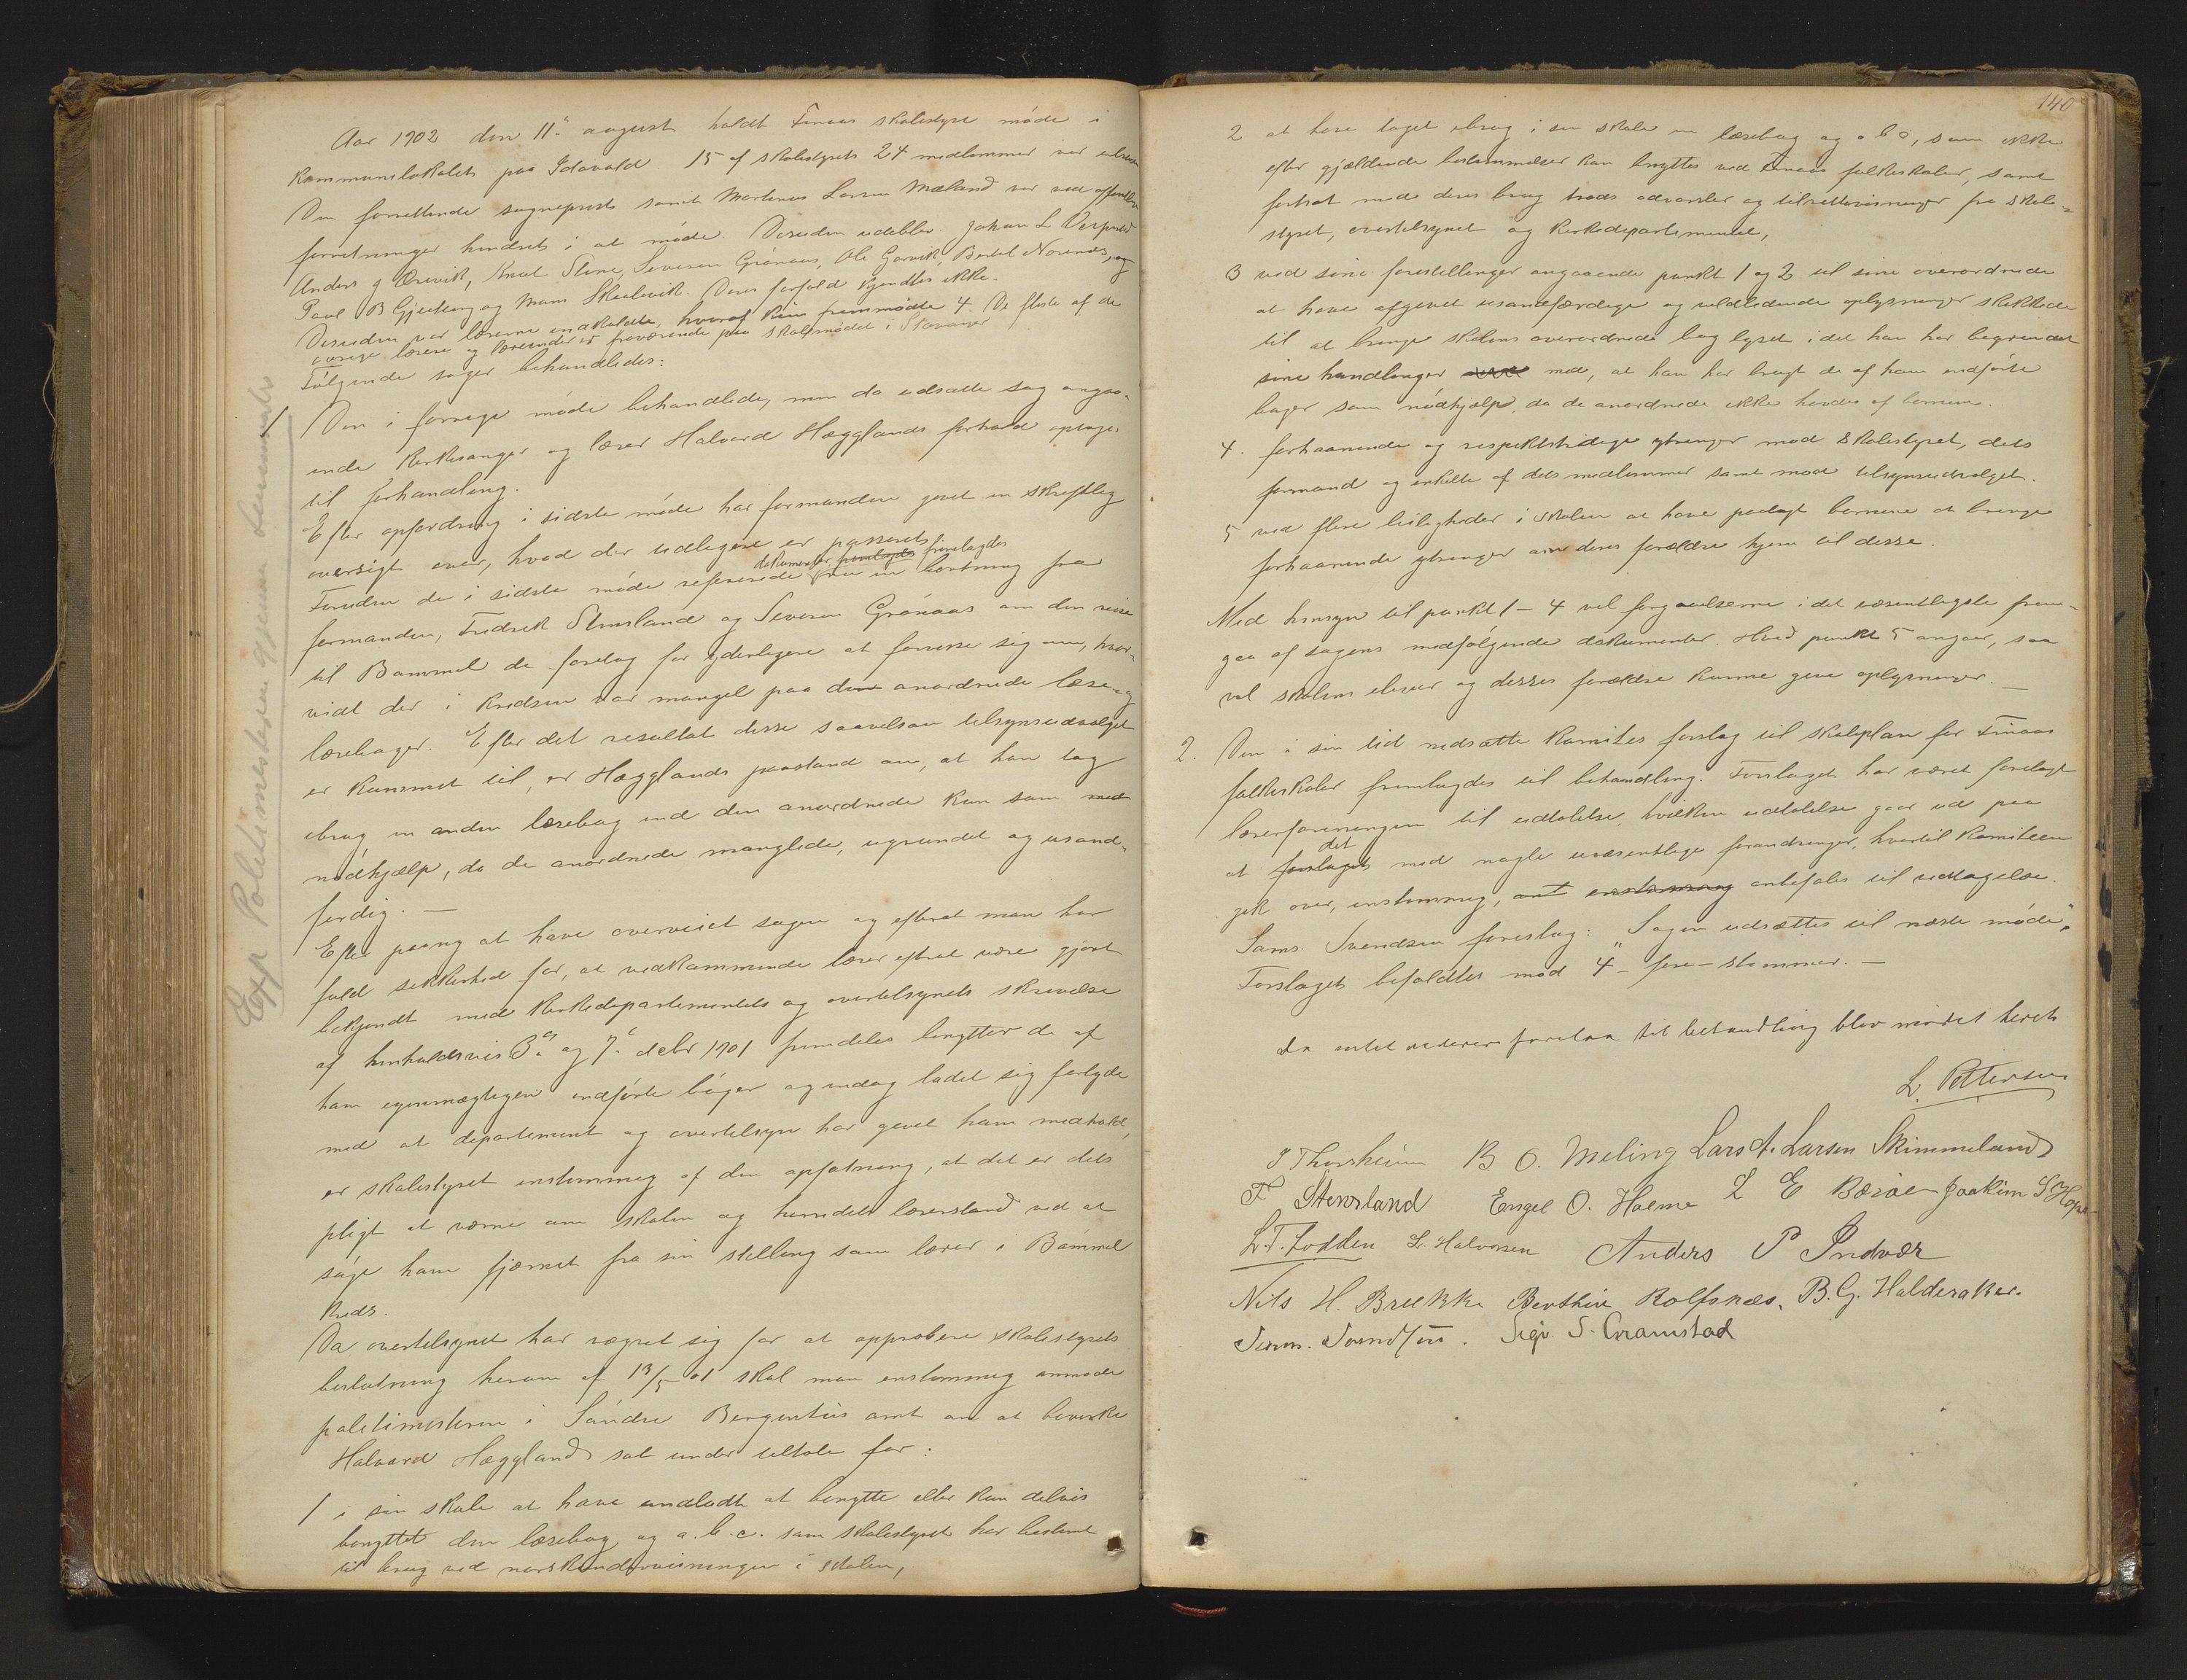 Aar 1902 den 11te august holdt Finaas skolestyre møde i
kommunelokalet paa Idavold. 15 af skolestyrets 24 medlemmer var
Den forrettende sogneprest samt Martinus Larsen Mæland var ved offentlige
forretninger hindret i at møde. Desuden udeblev Johan L Vespestad
Anders g Ørevik, Knut Stene, Severin Grønaas, Ole Gorvik, Bertel Norenæs, og
Paul B Gjerteng og Mons Skulevik. Deres forfald kjendtes ikke.
Desuden var lærerne indkaldte, hvoraf kun fremmødte 4. De fleste af de
øvrige lærere og lærerinder er fraværende paa skolemødet i Stavanger
Følgende sager behandledes:
1 Den i forrige møde behandlede, men da udsatte sag angaa-
ende kirkesanger og lærer Halvard Hægglands forhold optages
til forhandling.
Efter opfordring i sidste møde har formanden givet en skriftlig
oversigt over, hvad der tidligere er passeret.
dokumenter fremlagdes frmlagdes
Foruden de i sidste møde refererede en beretning fra
formanden, Fredrik Stensland og Severin Grønaas om den reise
til Bømmel de foretog for yderligere at forvisse sig om, hvor-
vidt der i kredsen var mangel paa den anordnede læse- og
lærebøger. Efter det resultat disse saavelsom tilsynsudvalget
er kommet til, er Hægglands paastand om, at han tog
ibrug en anden læsebog end den anordnede kun som
nødhjælp, da de anordnede manglede, ugrundet og usand-
færdig. —
Efter paany at have overveiet sagen og efterat man har
fuld sikkerhed for, at vedkommende lærer efterat være gjort
bekjendt med Kirkedepartementets og overtilsynets skrivelse
af henholdsvis 3. og 7. debr 1901 fremdeles benytter de af
ham egenmægtigen indførte bøger og endog ladet sig forlyde
med at departement og overtilsyn har givet ham medhold,
er skolestyret enstemmig af den opfatning, at det er dets
pligt at værne om skolen og herredets lærerstand ved at
søge ham fjernet fra sin stilling som lærer i Bømmel
kreds.
Da overtilsynet har vægret sig for at approbere skolestyrets
beslutning herom af 13/5 01 skal man enstemmig anmode
politimesteren i Søndre Bergenhus amt om at bevirke
Halvard Hæggland sat under tiltale for:
1 i sin skole at have undladt at benytte eller kun delvis
benyttet den læsebog og a.b.c. som skolestyret har bestemt
til brug ved norskundervisningen i skolen,
Exp Politimesteren gjennem Lensmanden
140
2 at have taget ibrug i sin skole en læsebog og abc, som ikke
efter gjældende bestemmelser kan benyttes ved Finaas folkeskoler, samt
fortsat med deres brug trods advarsler og tilrettevisninger fra skole-
styret, overtilsynet og Kirkedepartementet,
3 ved sine forestillinger angaaende punkt 1 og 2 til sine overordnede
at have afgivet usandfærdige og vildledende oplysninger skikkede
til at bringe skolens overordnede bag lyset idet han har begrundet
sine handlinger med, at han har brugt de af ham indførte
bøger som nødhjælp, da de anordnede ikke havdes af børnene.
4. forhaanende og respektstridige ytringer mod skolestyret, dets
formand og enkelte af dets medlemmer samt mod tilsynsudvalget.
5 ved flere leiligheder i skolen at have paalagt børnene at bringe
forhaanende ytringer om deres forældre hjem til disse.
Med hensyn til punkt 1-4 vil forgaaelserne i det væsentligste frem-
gaa af sagens medfølgende dokumenter. Hvad punkt 5 angaar, saa
vil skolens elever og disses forældre kunne give oplysninger. —
2. Den i sin tid nedsatte komites forslag til skoleplan for Finaas
folkeskoler fremlagdes til behandling. Forslaget har været forelagt
lærerforeningen til udtalelse, hvilken udtalelse gaar ud paa
det
at forslaget med nogle uvæsentlige forandringer, hvortil komiteen
gik over, enstemmig, ant enstemmig anbefales til vedtagelse.
Sams. Svendsen foreslog: "Sagen udsættes til næste møde".
Forslaget befaldtes mod 4 - fire - stemmer. —
da intet videre forelaa til behandling blev mødet hevet
L. Pettersen
I Thorsheim B O. Meling Lars A. Larsen Skimmeland
F Stensland Engel O. Holme L E Børøe Joakim S Hope
L.T. Fodden L. Halvorsen Anders P Indvær
Nils H. Brekke Berthin Rolfsnæs, B. G. Halderaker.
Sam. Svendsen. Sigv. S. Oramstad